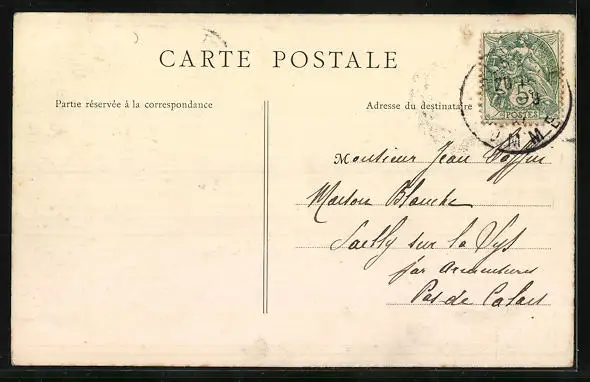 CARTE POSTALE
Partie réservée à la correspondance
Adresse du destinataire
5
POSTES
Monsieur Jean
Maison Blanche
Sailly sur la Lys
par Armentières
Pas de Calais